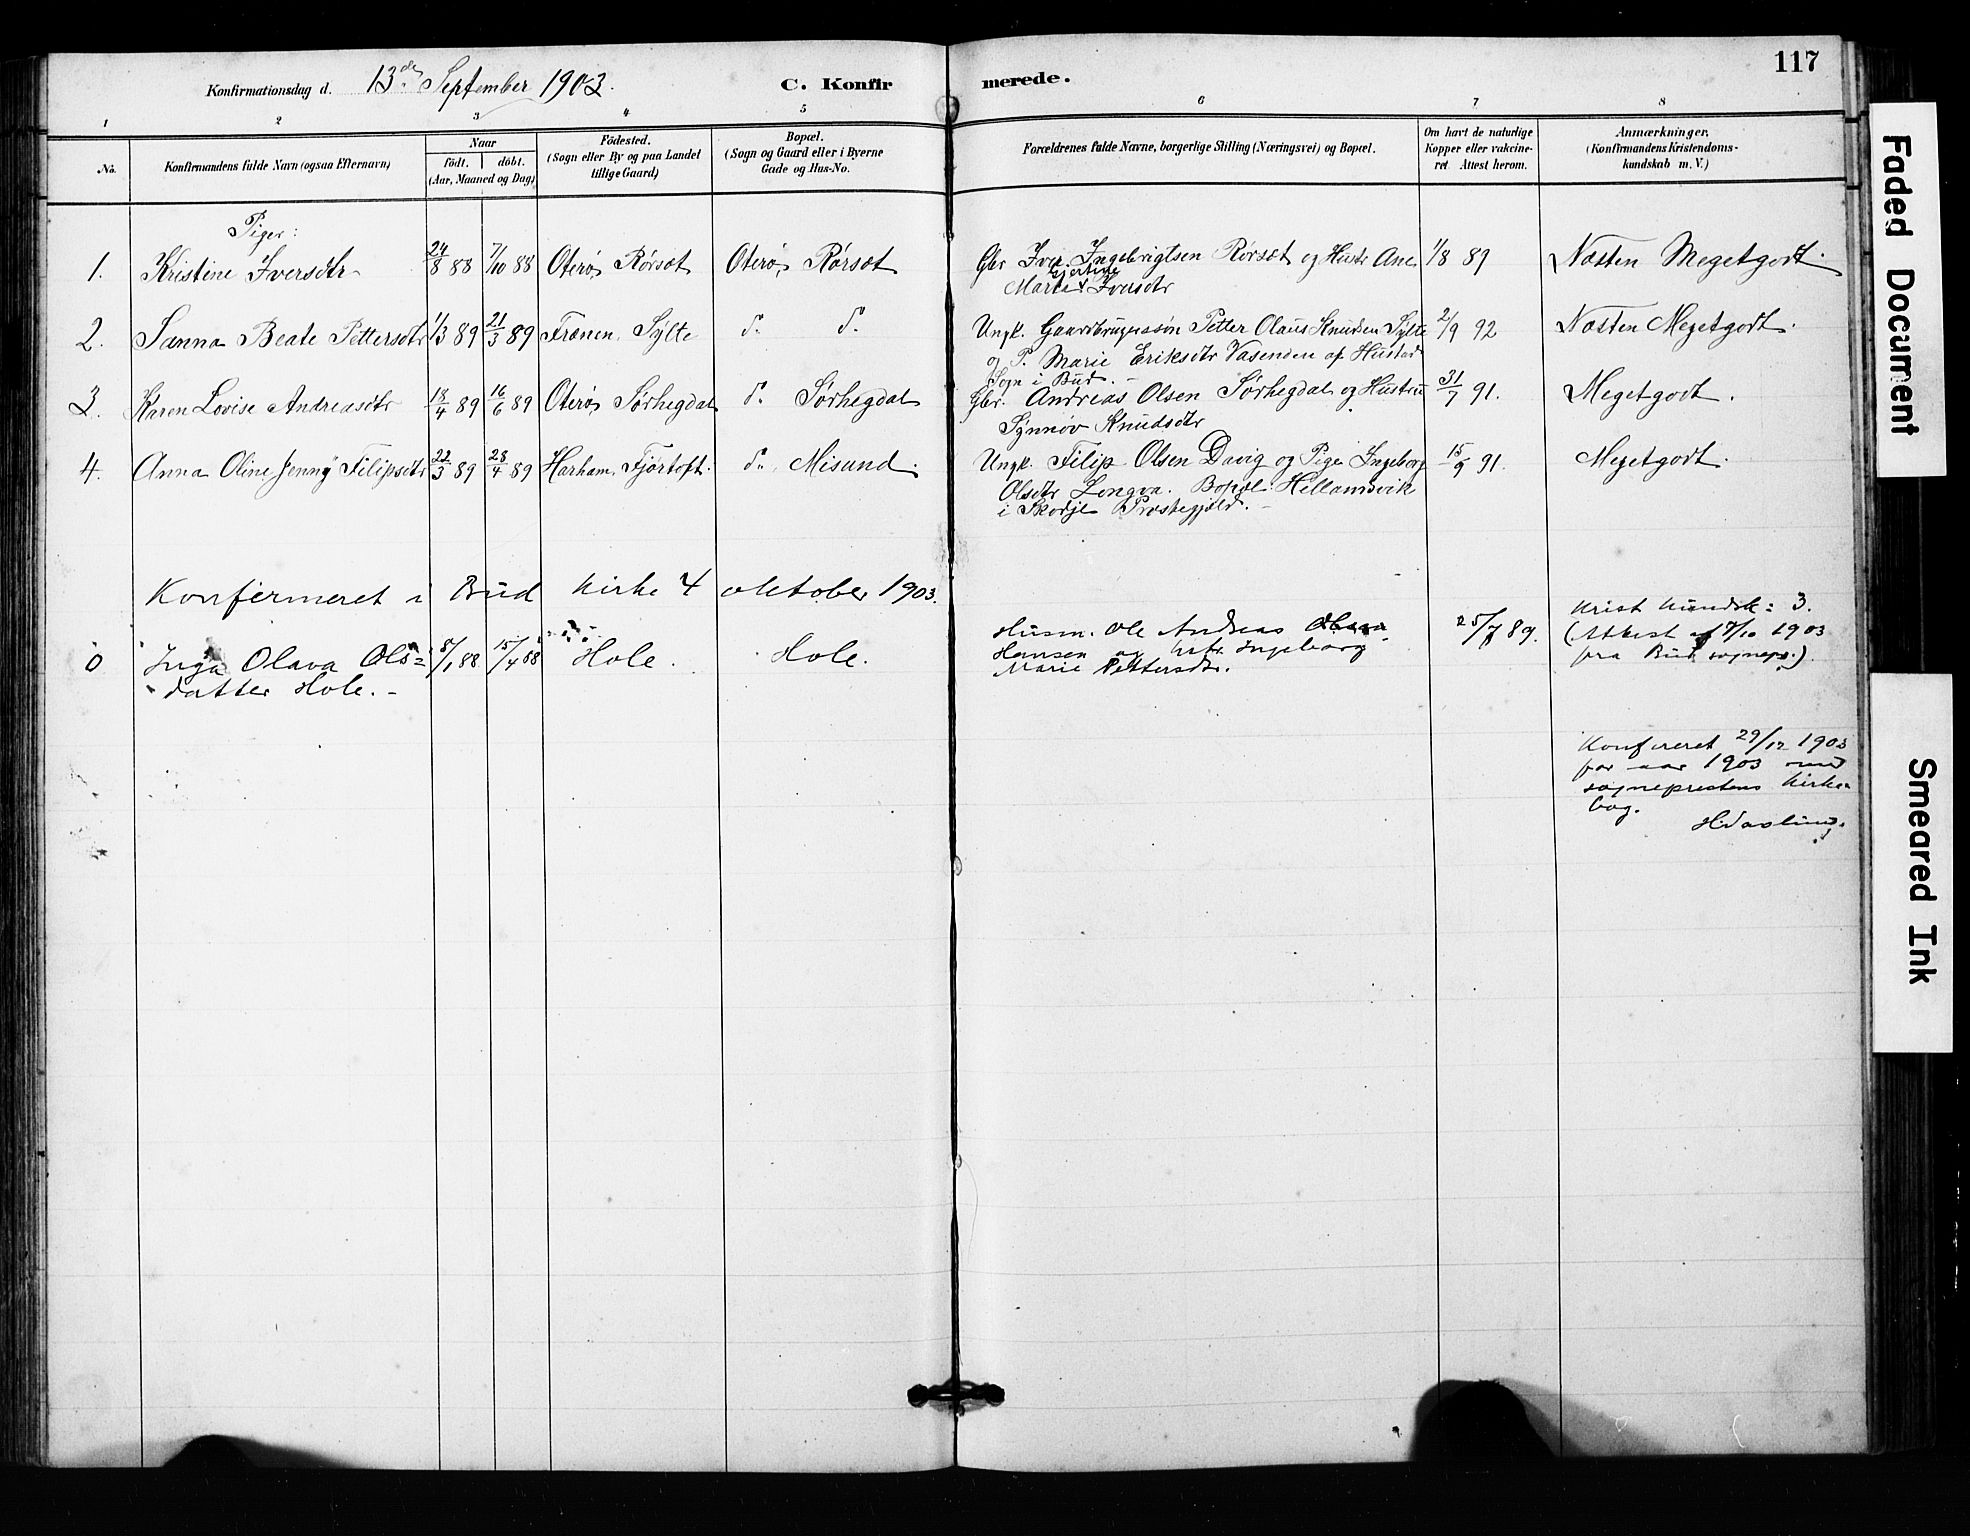 117
Konfirmationsdag d. 13de September 1903. C. Konfirmerede.
1 2 3 4 5 6 7 8
No. Konfirmandens fulde Navn (ogsaa Efternavn) Naar födt. döbt. (Aar, Maaned og Dag) Födested. (Sogn eller By og paa Landet tillige Gaard) Bopæl. (Sogn og Gaard eller i Byerne Gade og Hus-No. Forældrenes fulde Navne, borgerlige Stilling (Næringsvei) og Bopæl. Om havt de naturlige Kopper eller vakcineret Attest herom. Anmærkninger. (Konfirmandens Kristendomskundskab m. V.)
Piger:
1. Kristine Iversdtr 24/8 88 7/10 88 Oterø, Rørsæt Oterø, Rørsæt Gbr Iver Ingebrigtsen Rørsæt og Hustr Ane 1/8 89 Næsten Megetgodt.
Marta Gjertine Iversdtr
2. Sanna Beate Pettersdtr 1/3 89 21/3 89 Frænen, Sylte d. d. Ungk. Gaardbrugersøn Petter Olaus Knudsen Sylte 2/9 92 Næsten Megetgodt.
og P. Marie Eriksdtr Vasenden af Hustad
Sogn i Bud.
3. Karen Lovise Andreasdtr 18/4 89 16/6 89 Oterø, Sørhegdal d. Sørhegdal Gbr. Andreas Olsen Sørhegdal og Hustru 31/7 91. Megetgodt.
Synnøv Knudsdtr
4. Anna Oline Jenny Filipsdtr 22/3 89 28/4 89 Harham, Fjørtoft. d. Misund. Ungk. Filip Olsen Davig og Pige Ingeborg 15/9 91. Megetgodt.
Olsdtr Longva. Bopæl: Hellandsvik
i Skodje Præstegjæld.
Konfirmeret i Bud kirke 4 oktober 1903.
0 Inga Olava Olsdatter Hole. 8/1 88 15/4 88 Hole. Hole. Husm. Ole Andreas
Hansen og hstr. Ingeborg
Marie Pettersdtr.
25/7 89. Krist kundsk: 3.
(Attest af 7/10 1903
fra Bud sognepr.)
Konfereret 29/12 1903
for aar 1903 med
sogneprestens kirkebog.
Faded Document
Smeared Ink